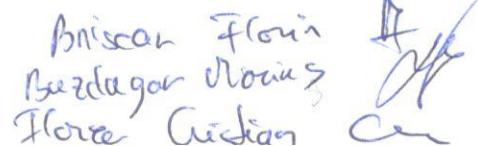 Briscan Florin
Buzdugan Marius
Florea Cristian